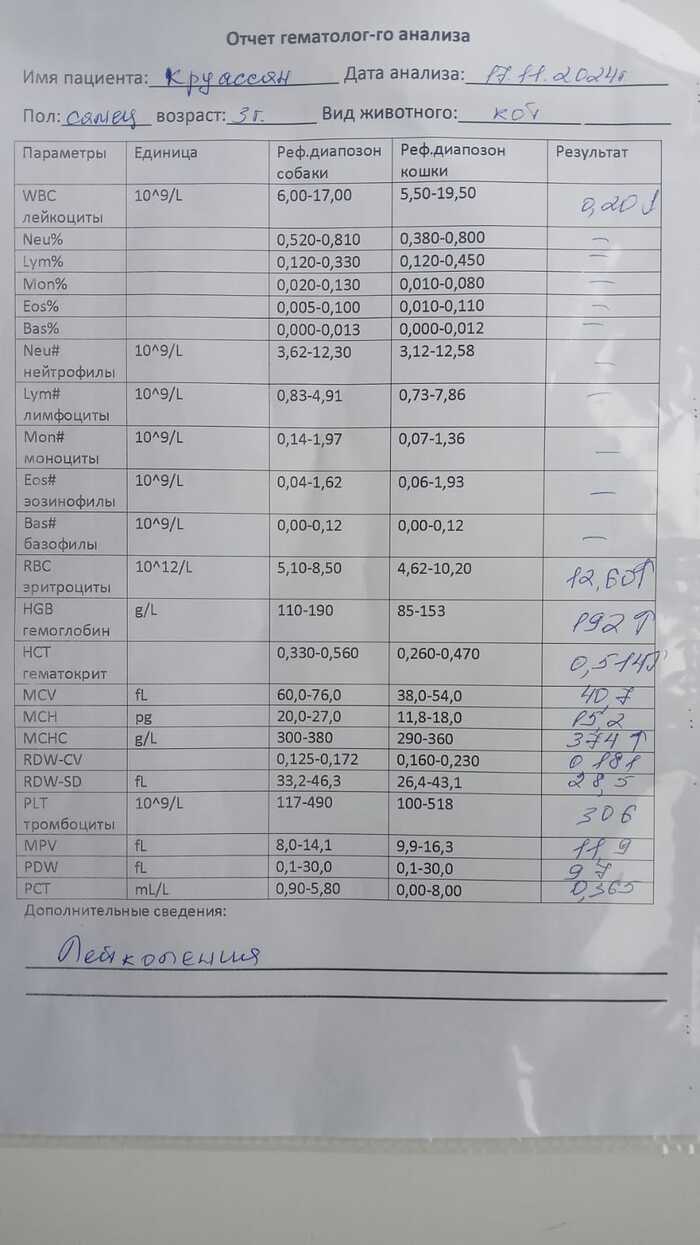 Отчет гематолог-го анализа
Имя пациента: Круассан Дата анализа: 17.11.2024г
Пол: самец возраст: 3г. Вид животного: кот
Параметры Единица Реф.диапозон собаки Реф.диапозон кошки Результат
WBC лейкоциты 10^9/L 6,00-17,00 5,50-19,50 0,20↓
Neu% 0,520-0,810 0,380-0,800 —
Lym% 0,120-0,330 0,120-0,450 —
Mon% 0,020-0,130 0,010-0,080 —
Eos% 0,005-0,100 0,010-0,110 —
Bas% 0,000-0,013 0,000-0,012 —
Neu# нейтрофилы 10^9/L 3,62-12,30 3,12-12,58 —
Lym# лимфоциты 10^9/L 0,83-4,91 0,73-7,86 —
Mon# моноциты 10^9/L 0,14-1,97 0,07-1,36 —
Eos# эозинофилы 10^9/L 0,04-1,62 0,06-1,93 —
Bas# базофилы 10^9/L 0,00-0,12 0,00-0,12 —
RBC эритроциты 10^12/L 5,10-8,50 4,62-10,20 12,60↑
HGB гемоглобин g/L 110-190 85-153 192↑
HCT гематокрит 0,330-0,560 0,260-0,470 0,514↑
MCV fL 60,0-76,0 38,0-54,0 40,7
MCH pg 20,0-27,0 11,8-18,0 15,2
MCHC g/L 300-380 290-360 374↑
RDW-CV 0,125-0,172 0,160-0,230 0,181
RDW-SD fL 33,2-46,3 26,4-43,1 28,5
PLT тромбоциты 10^9/L 117-490 100-518 306
MPV fL 8,0-14,1 9,9-16,3 11,9
PDW fL 0,1-30,0 0,1-30,0 9,7
PCT mL/L 0,90-5,80 0,00-8,00 0,365
Дополнительные сведения:
Лейкопения